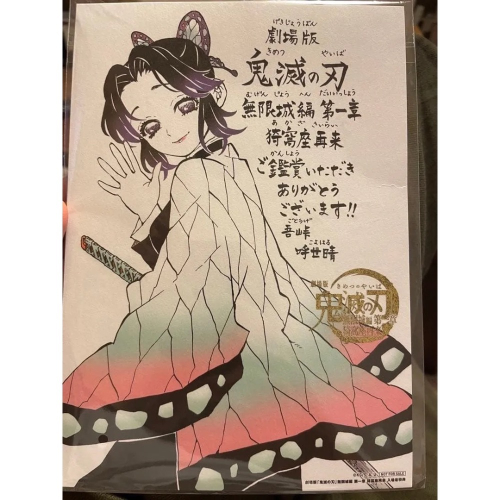 げきじょうばん
劇場版
きめつ やいば
鬼滅の刃
むげんじょう へん だいいっしょう
無限城編 第一章
あかざ さいらい
猗窩座再来
かんしょう
ご鑑賞いただき
ありがとう
ございます!!
ごとうげ
吾峠
こよはる
呼世晴
劇場版 きめつのやいば
鬼滅の刃
無限城編 第一章
猗窩座再来
NOT FOR SALE
劇場版「鬼滅の刃」無限城編 第一章 猗窩座再来 入場者特典